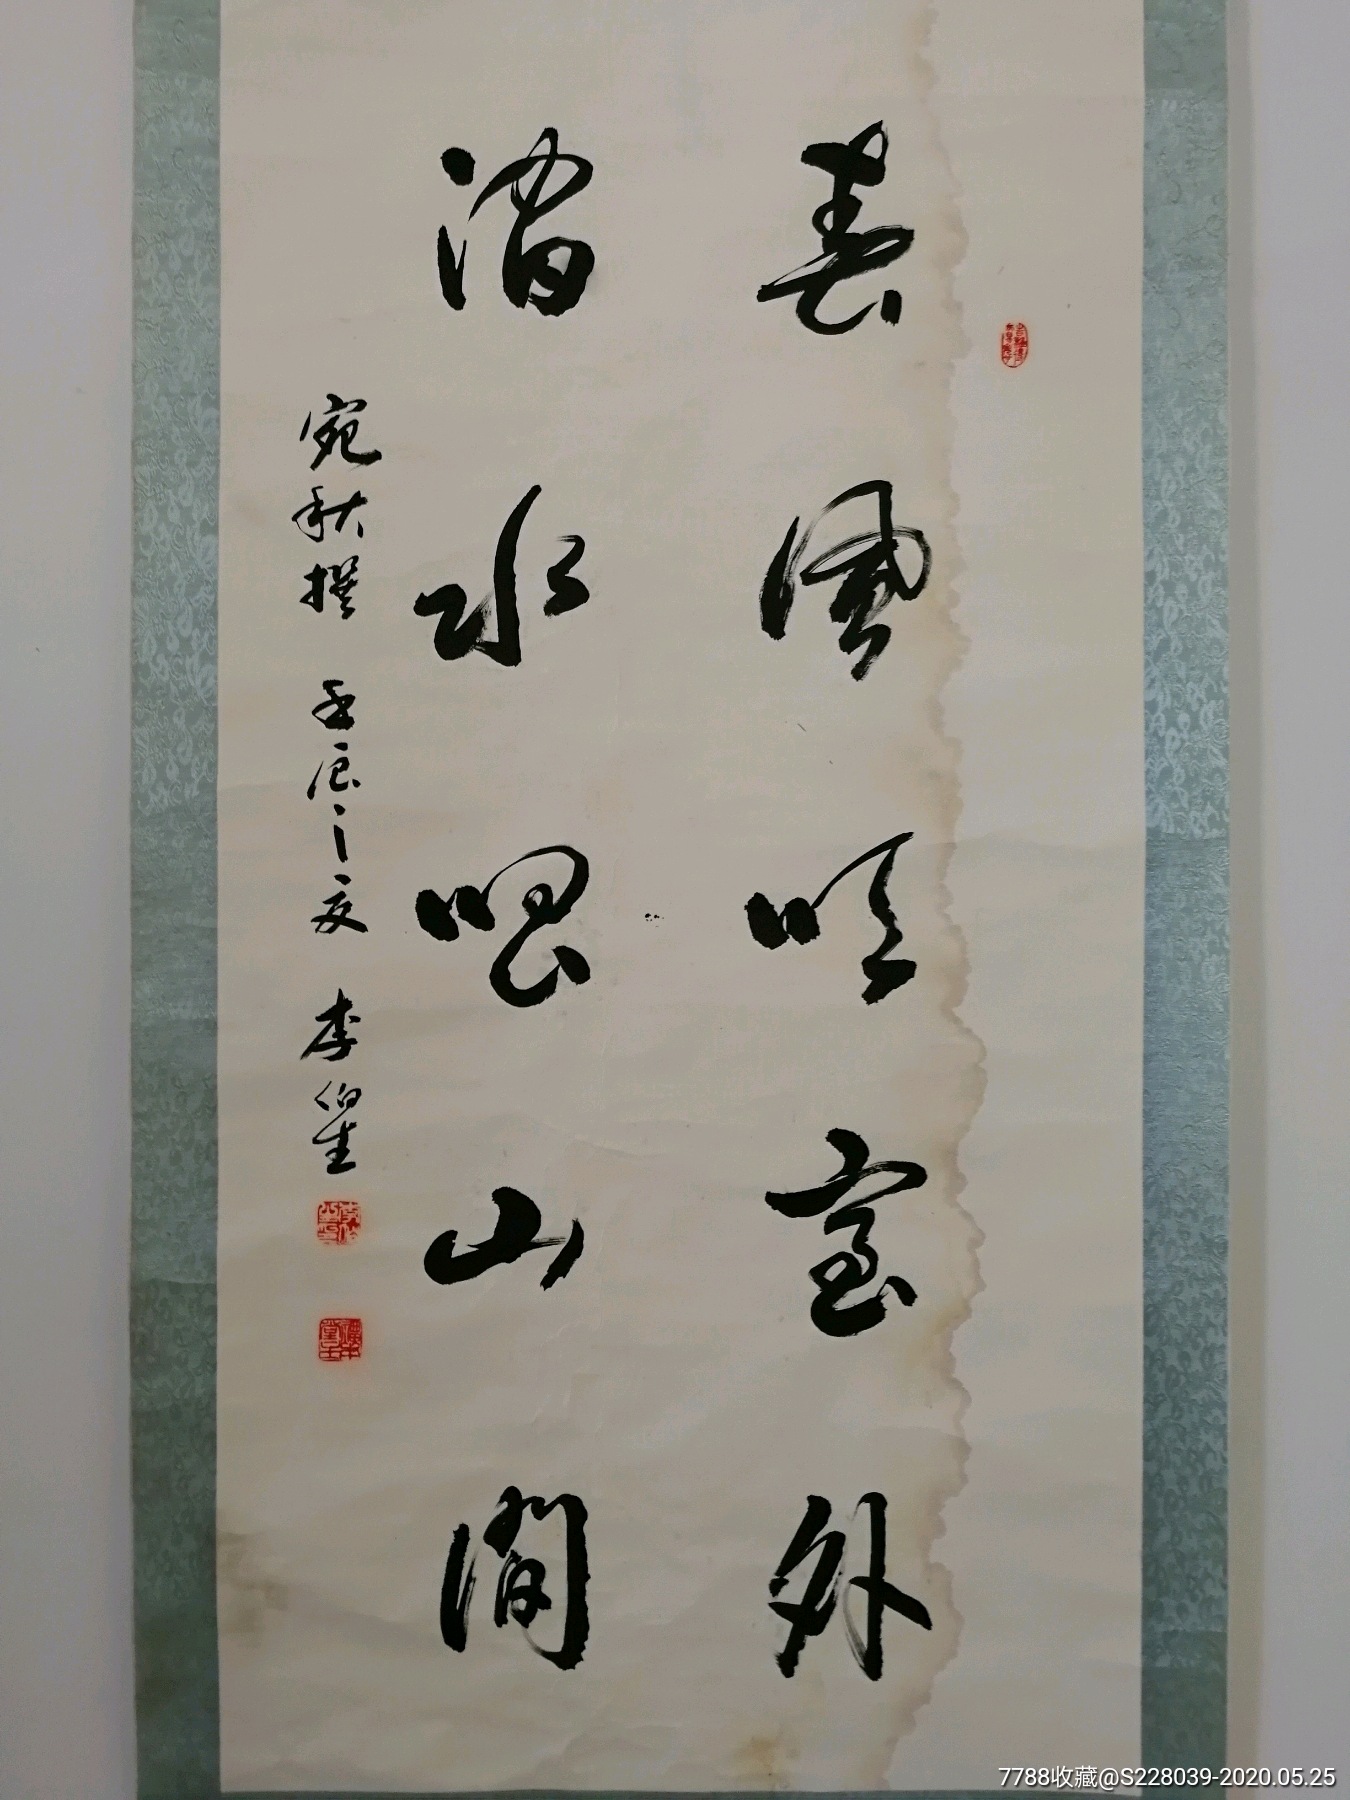 春風吹室外
水山間
宛秋撰 壬辰之夏 李伯生
7788收藏@S228039-2020.05.25